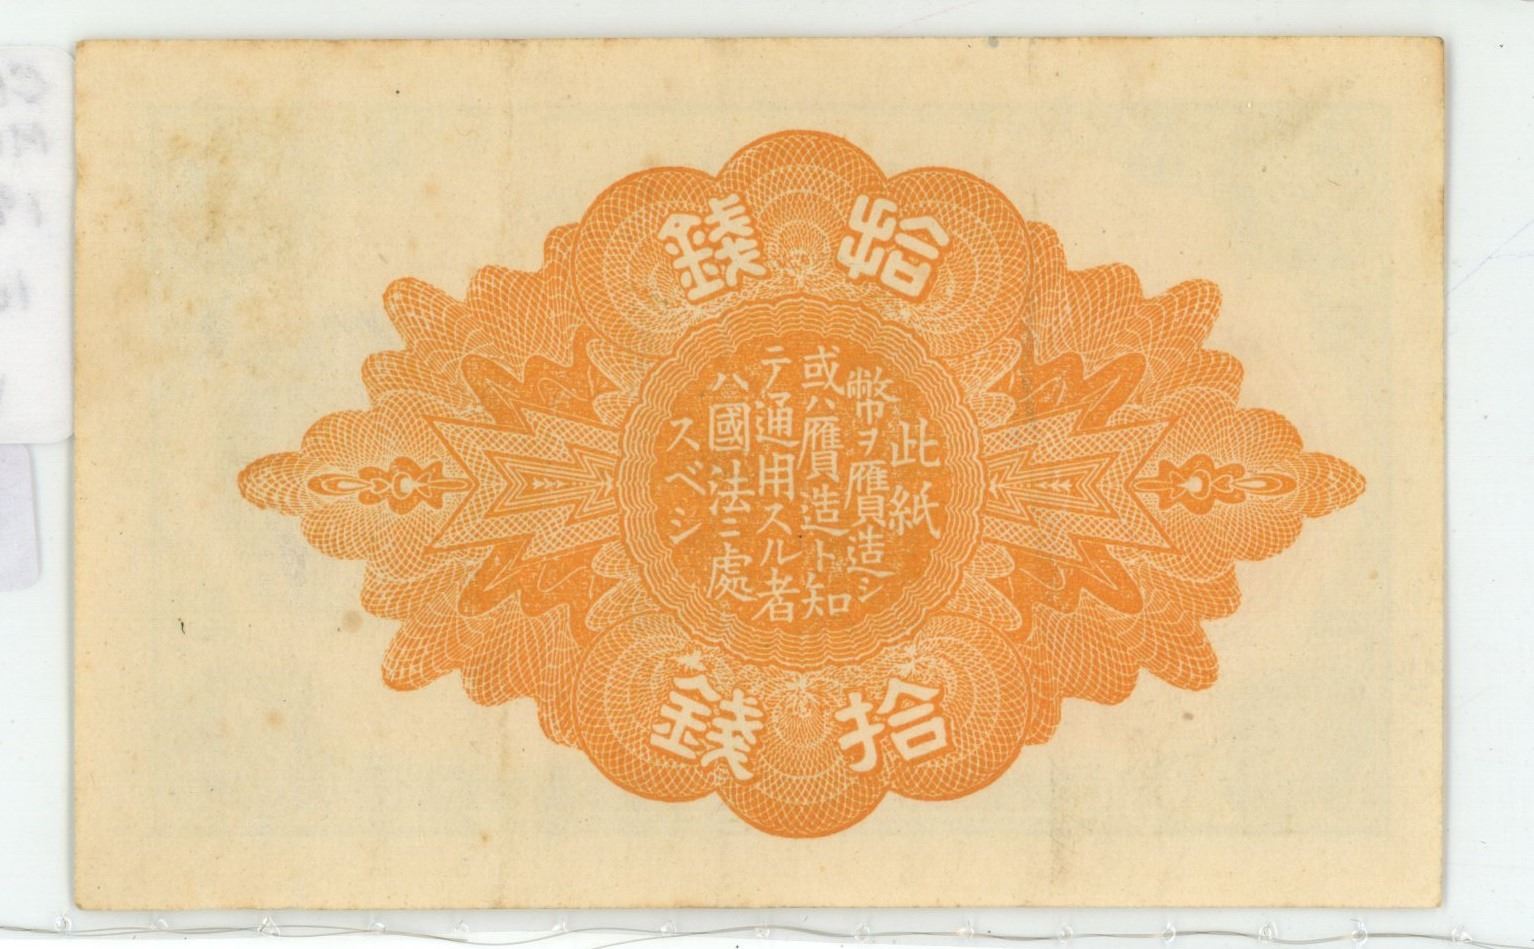 拾錢
此紙
幣ヲ贋造シ
或ハ贋造ト知
テ通用スル者
ハ國法ニ處
スベシ
拾錢